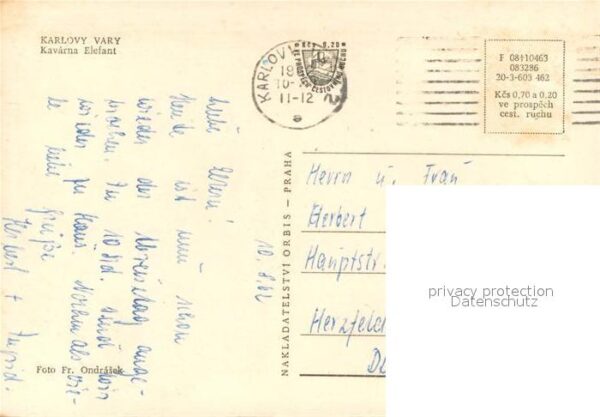 KARLOVY VARY
Kavárna Elefant
KARLOVY
18
10-
11-12
Kčs 0.20
VE PROSPĚCH CESTOVNÍHO RUCHU
F 08†10463
083286
20-3-603 462
Kčs 0,70 a 0,20
ve prospěch
cest. ruchu
Heute ist nun schon
wieder der Abreisetag ange-
brochen. In 10 Std. sind wir
wieder zu Haus. Nochmals vie-
le liebe Grüße
Herbert + Ingrid.
10.8.62
NAKLADATELSTVÍ ORBIS — PRAHA
Herrn u. Frau
Herbert
Hauptstr.
Herzfeld
privacy protection
Datenschutz
Foto Fr. Ondrášek